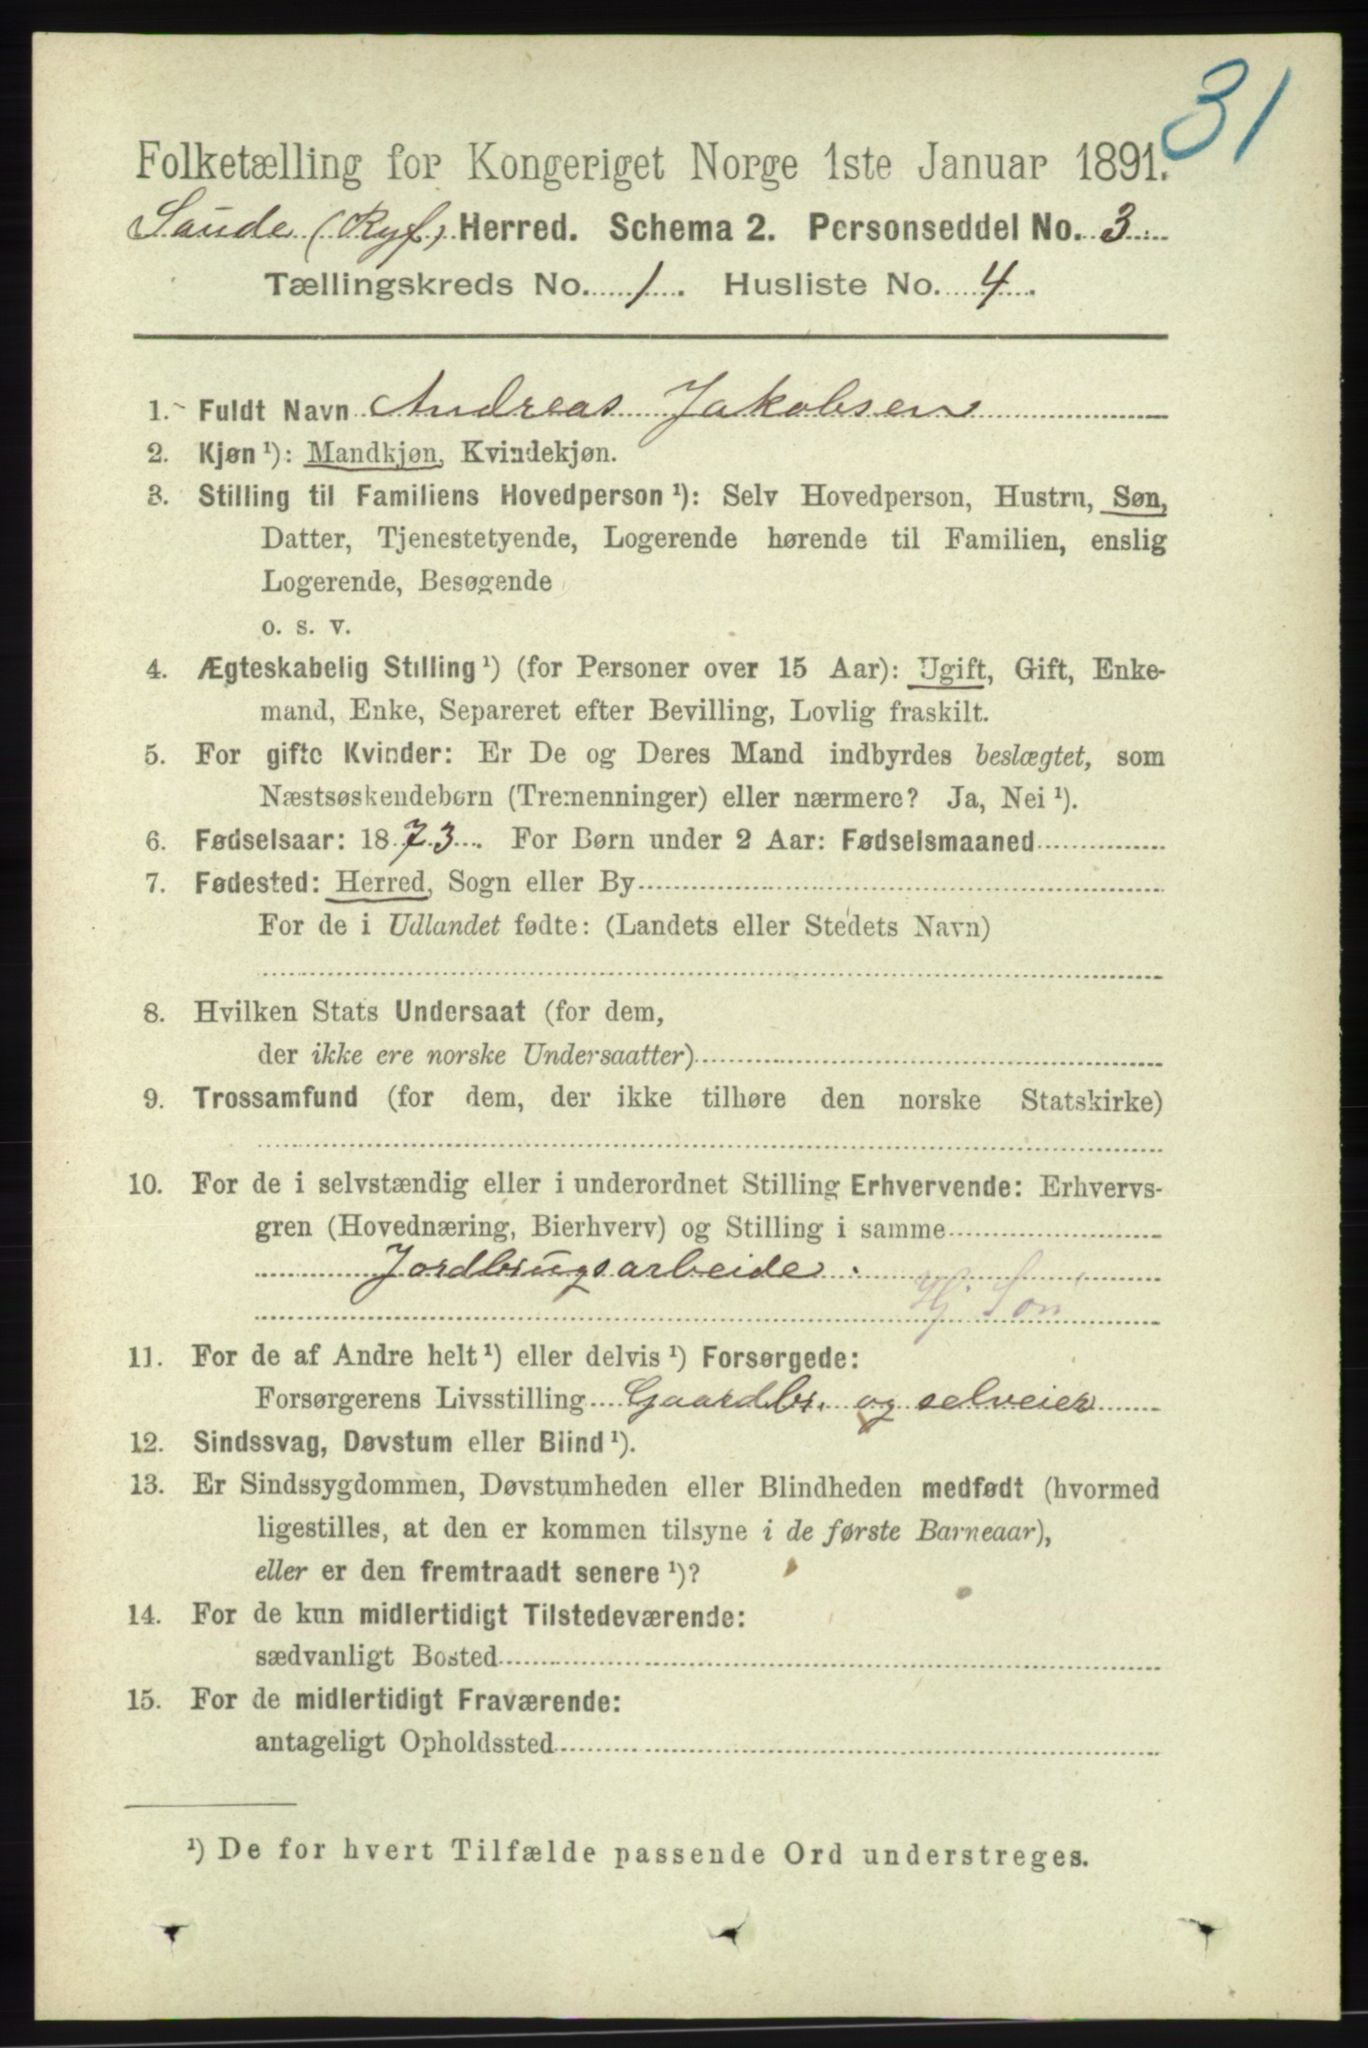 31
Folketælling for Kongeriget Norge 1ste Januar 1891.
Saude (Ryf) Herred. Schema 2. Personseddel No. 3
Tællingskreds No. 1. Husliste No. 4.
1. Fuldt Navn Andreas Jakobsen
2. Kjøn ¹): Mandkjøn, Kvindekjøn.
3. Stilling til Familiens Hovedperson ¹): Selv Hovedperson, Hustru, Søn,
Datter, Tjenestetyende, Logerende hørende til Familien, enslig
Logerende, Besøgende
o. s. v.
4. Ægteskabelig Stilling ¹) (for Personer over 15 Aar): Ugift, Gift, Enke-
mand, Enke, Separeret efter Bevilling, Lovlig fraskilt.
5. For gifte Kvinder: Er De og Deres Mand indbyrdes beslægtet, som
Næstsøskendebørn (Tremenninger) eller nærmere? Ja, Nei ¹).
6. Fødselsaar: 1873. For Børn under 2 Aar: Fødselsmaaned
7. Fødested: Herred, Sogn eller By
For de i Udlandet fødte: (Landets eller Stedets Navn)
8. Hvilken Stats Undersaat (for dem,
der ikke ere norske Undersaatter)
9. Trossamfund (for dem, der ikke tilhøre den norske Statskirke)
10. For de i selvstændig eller i underordnet Stilling Erhvervende: Erhvervs-
gren (Hovednæring, Bierhverv) og Stilling i samme
Jordbrugsarbeide.
Hj Søn
11. For de af Andre helt ¹) eller delvis ¹) Forsørgede:
Forsørgerens Livsstilling Gaardbr. og selveier
12. Sindssvag, Døvstum eller Blind ¹).
13. Er Sindssygdommen, Døvstumheden eller Blindheden medfødt (hvormed
ligestilles, at den er kommen tilsyne i de første Barneaar),
eller er den fremtraadt senere ¹)?
14. For de kun midlertidigt Tilstedeværende:
sædvanligt Bosted
15. For de midlertidigt Fraværende:
antageligt Opholdssted
¹) De for hvert Tilfælde passende Ord understreges.